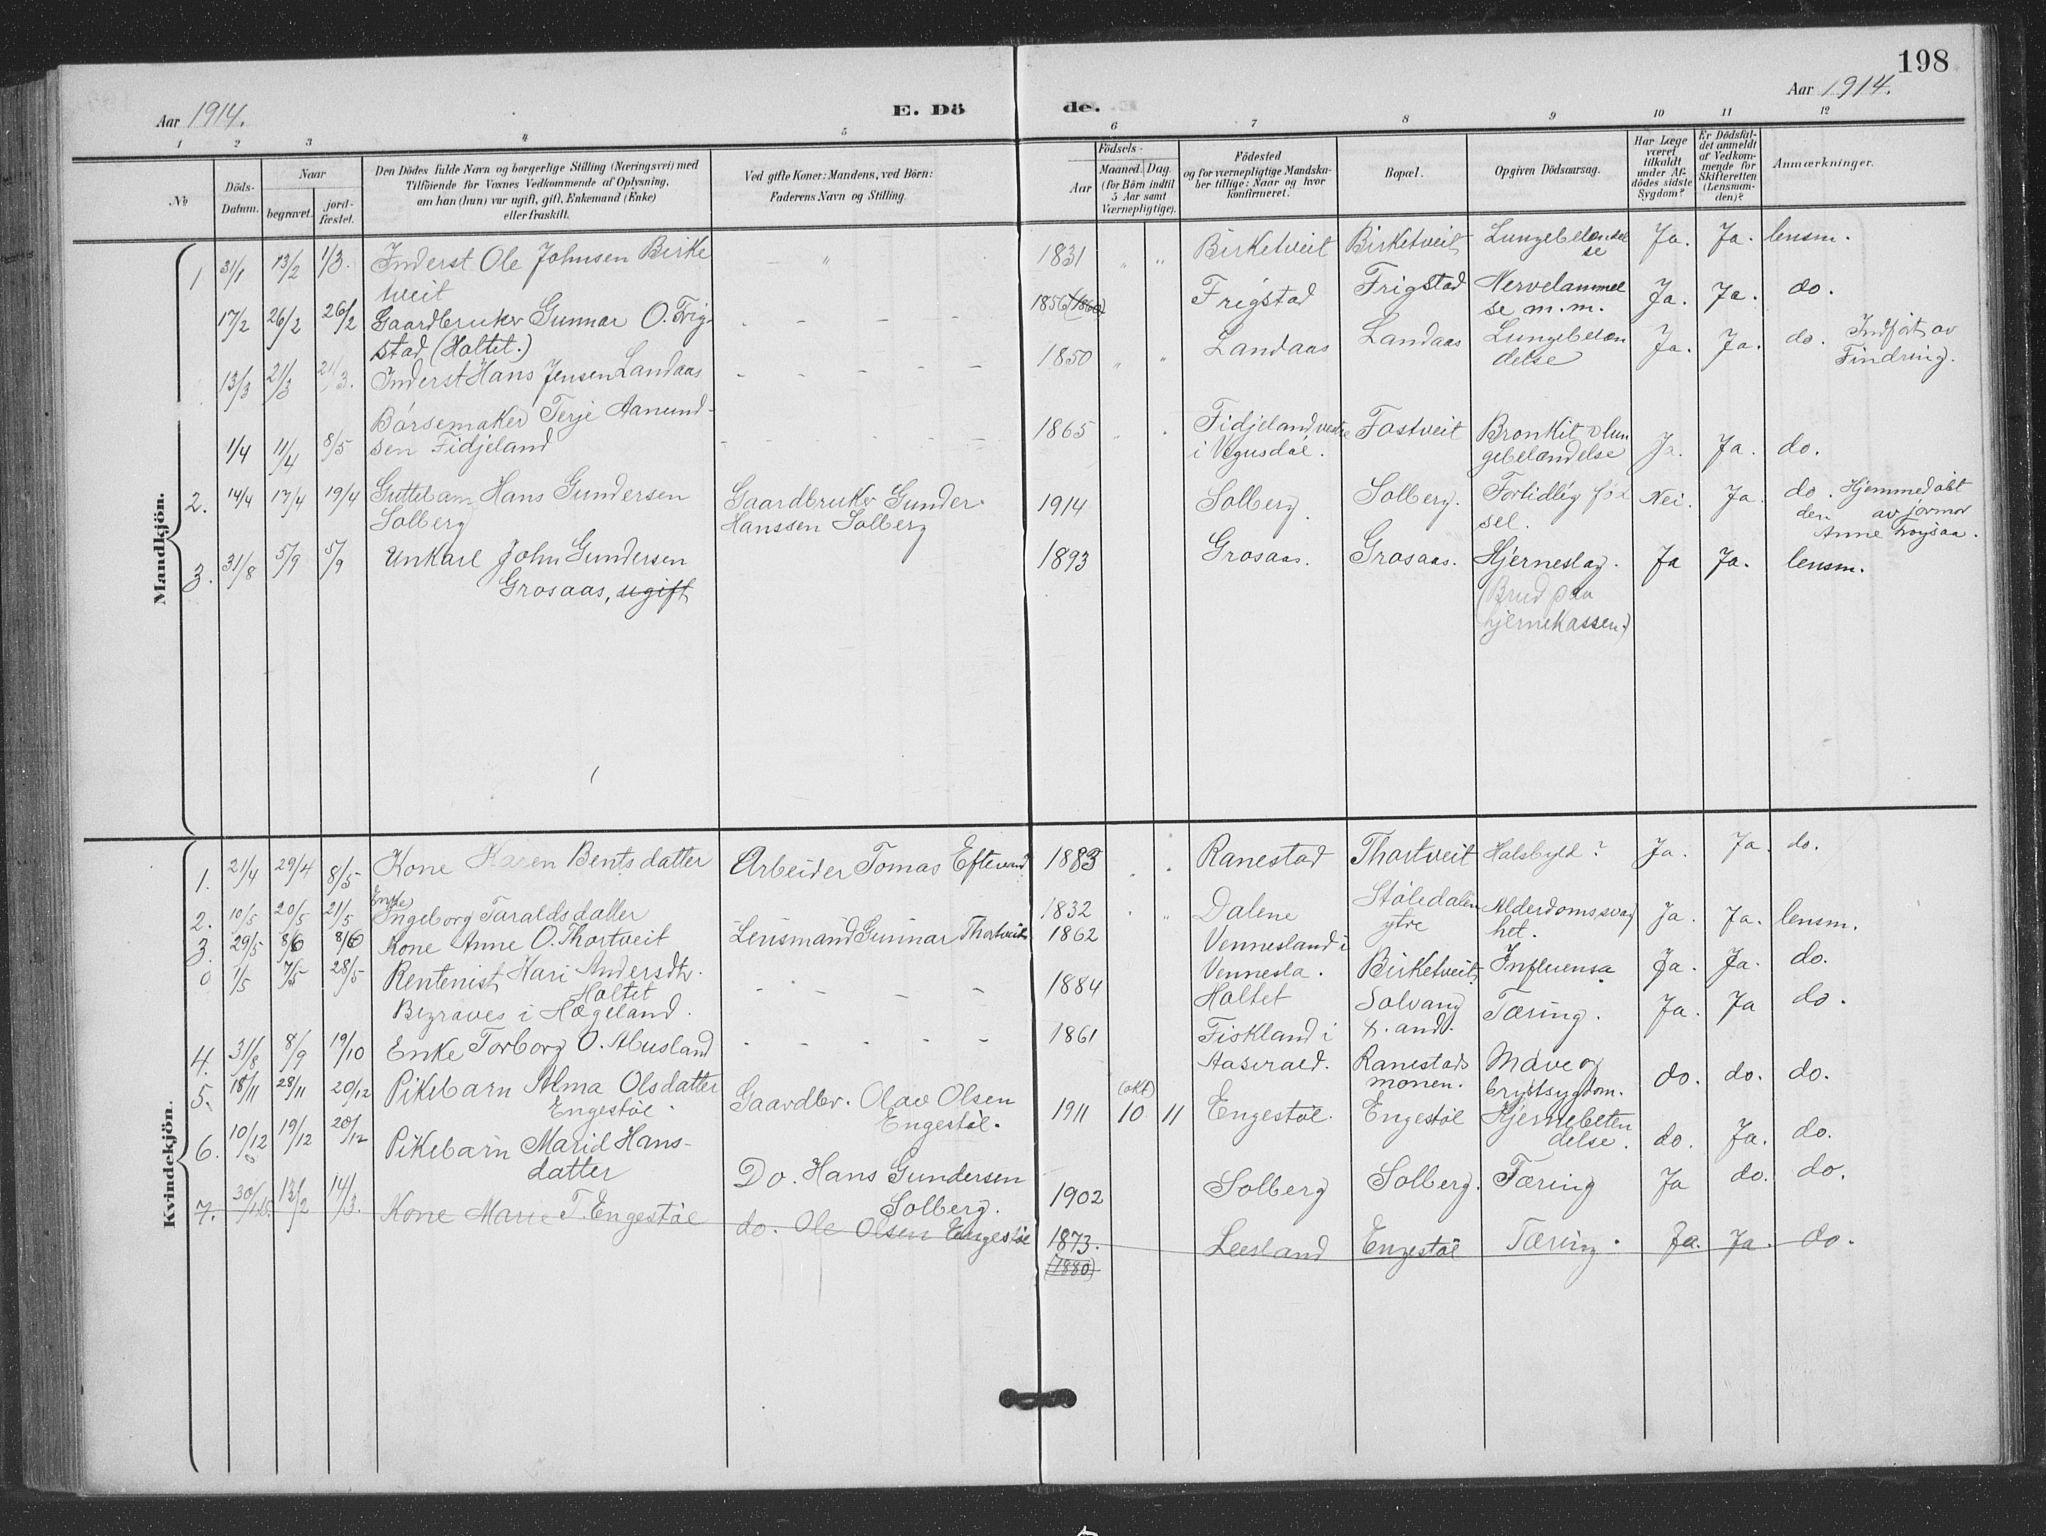 198
Aar 1914.
E. Dö
de.
Aar 1914.
1 2 3 4 5 6 7 8 9 10 11 12
№
Döds-Datum.
Naar
begravet.
jord-fæstet.
Den Dödes fulde Navn og borgerlige Stilling (Næringsvei) med
Tilföiende for Voxnes Vedkommende af Oplysning,
om han (hun) var ugift, gift, Enkemand (Enke)
eller fraskilt.
Ved gifte Koner: Mandens, ved Börn:
Faderens Navn og Stilling.
Födsels-
Aar
Maaned. Dag.
(for Börn indtil
5 Aar samt
Værnepligtige).
Födested
og for værnepligtige Mandska-
ber tillige: Naar og hvor
konfirmeret.
Bopæl.
Opgiven Dödsaarsag.
Har Læge
været
tilkaldt
under Af-
dödes sidste
Sygdom?
Er Dödsfal-
det anmeldt
af Vedkom-
mende for
Skifteretten
(Lensman-
den)?
Anmærkninger.
Mandkjön.
1 31/1 13/2 1/3. Inderst Ole Johnsen Birke
tveit
1831 Birketveit Birketveit Lungebetændel
se Ja. Ja. lensm.
17/2 26/2 26/2 Gaardbruker Gunnar O. Frig-
stad (Holtet.)
1856 (1860) Frigstad Frigstad Nervelammel
se m.m. Ja. Ja. do.
13/3 21/3 21/3. Inderst Hans Jensen Landaas
1850 Landaas Landaas Lungebetæn
delse Ja. Ja. do. Indført av
Findring.
1/4 11/4 8/5 Børsemaker Terje Aanund-
sen Fidjeland
1865 Fidjeland vestre
i Vegusdal. Fostveit Bronkit o lun
gebetændelse Ja. Ja. do.
2. 14/4 17/4 19/4 Guttebarn Hans Gundersen
Solberg
Gaardbruker Gunder
Hanssen Solberg
1914 Solberg. Solberg. Fortidlig fød
sel. Nei. Ja do. Hjemmedøbt
den av jormor
Anne Frøysaa.
3. 31/8 5/9 5/9 Unkarl John Gundersen
Grosaas, ugift
1893 Grosaas. Grosaas. Hjerneslag.
(Brud paa
hjernekassen.)
Ja Ja. lensm.
Kvindekjön.
1. 21/4 29/4 8/5 Kone Karen Bentsdatter Arbeider Tomas Eftevand 1883 Ranestad Thortveit Halsbyld? Ja. Ja. do.
2. 10/5 20/5 21/5 Enke
Ingeborg Taraldsdatter 1832 Dalene Støledalen
ytre Alderdomssvag
het. Ja. Ja. lensm.
3. 29/5 8/6 8/6 Kone Anne O. Thortveit Lensmand Gunnar Thortveit 1862 Vennesland i
Vennesla. Birketveit Influensa Ja. Ja. do.
0 1/5 7/5 28/5 Rentenist Kari Andersdtr.
Holtet
Begraves i Hægeland.
1884 Holtet Solvang
Tæring. Ja. Ja do.
4. 31/8 8/9 19/10 Enke Torborg O. Abusland
1861 Fiskland i
Aaserald. Ranestads
monen. Mave og
brystsygdom. do. do. do.
5. 18/11 28/11 20/12 Pikebarn Alma Olsdatter
Engestøl.
Gaardbr. Olav Olsen
Engestøl.
1911 (okt) 10 11 Engestøl. Engestøl Hjernebeten
delse. do. Ja. do.
6. 10/12 19/12 20/12 Pikebarn Marid Hans-
datter
Do. Hans Gundersen
Solberg.
1902 Solberg Solberg. Tæring Ja do. do.
7. 30/1 13/2 14/3. Kone Marie T. Engestøl do. Ole Olsen Engestøl 1873.
(1880) Leesland Engestøl Tæring. Ja. Ja. do.